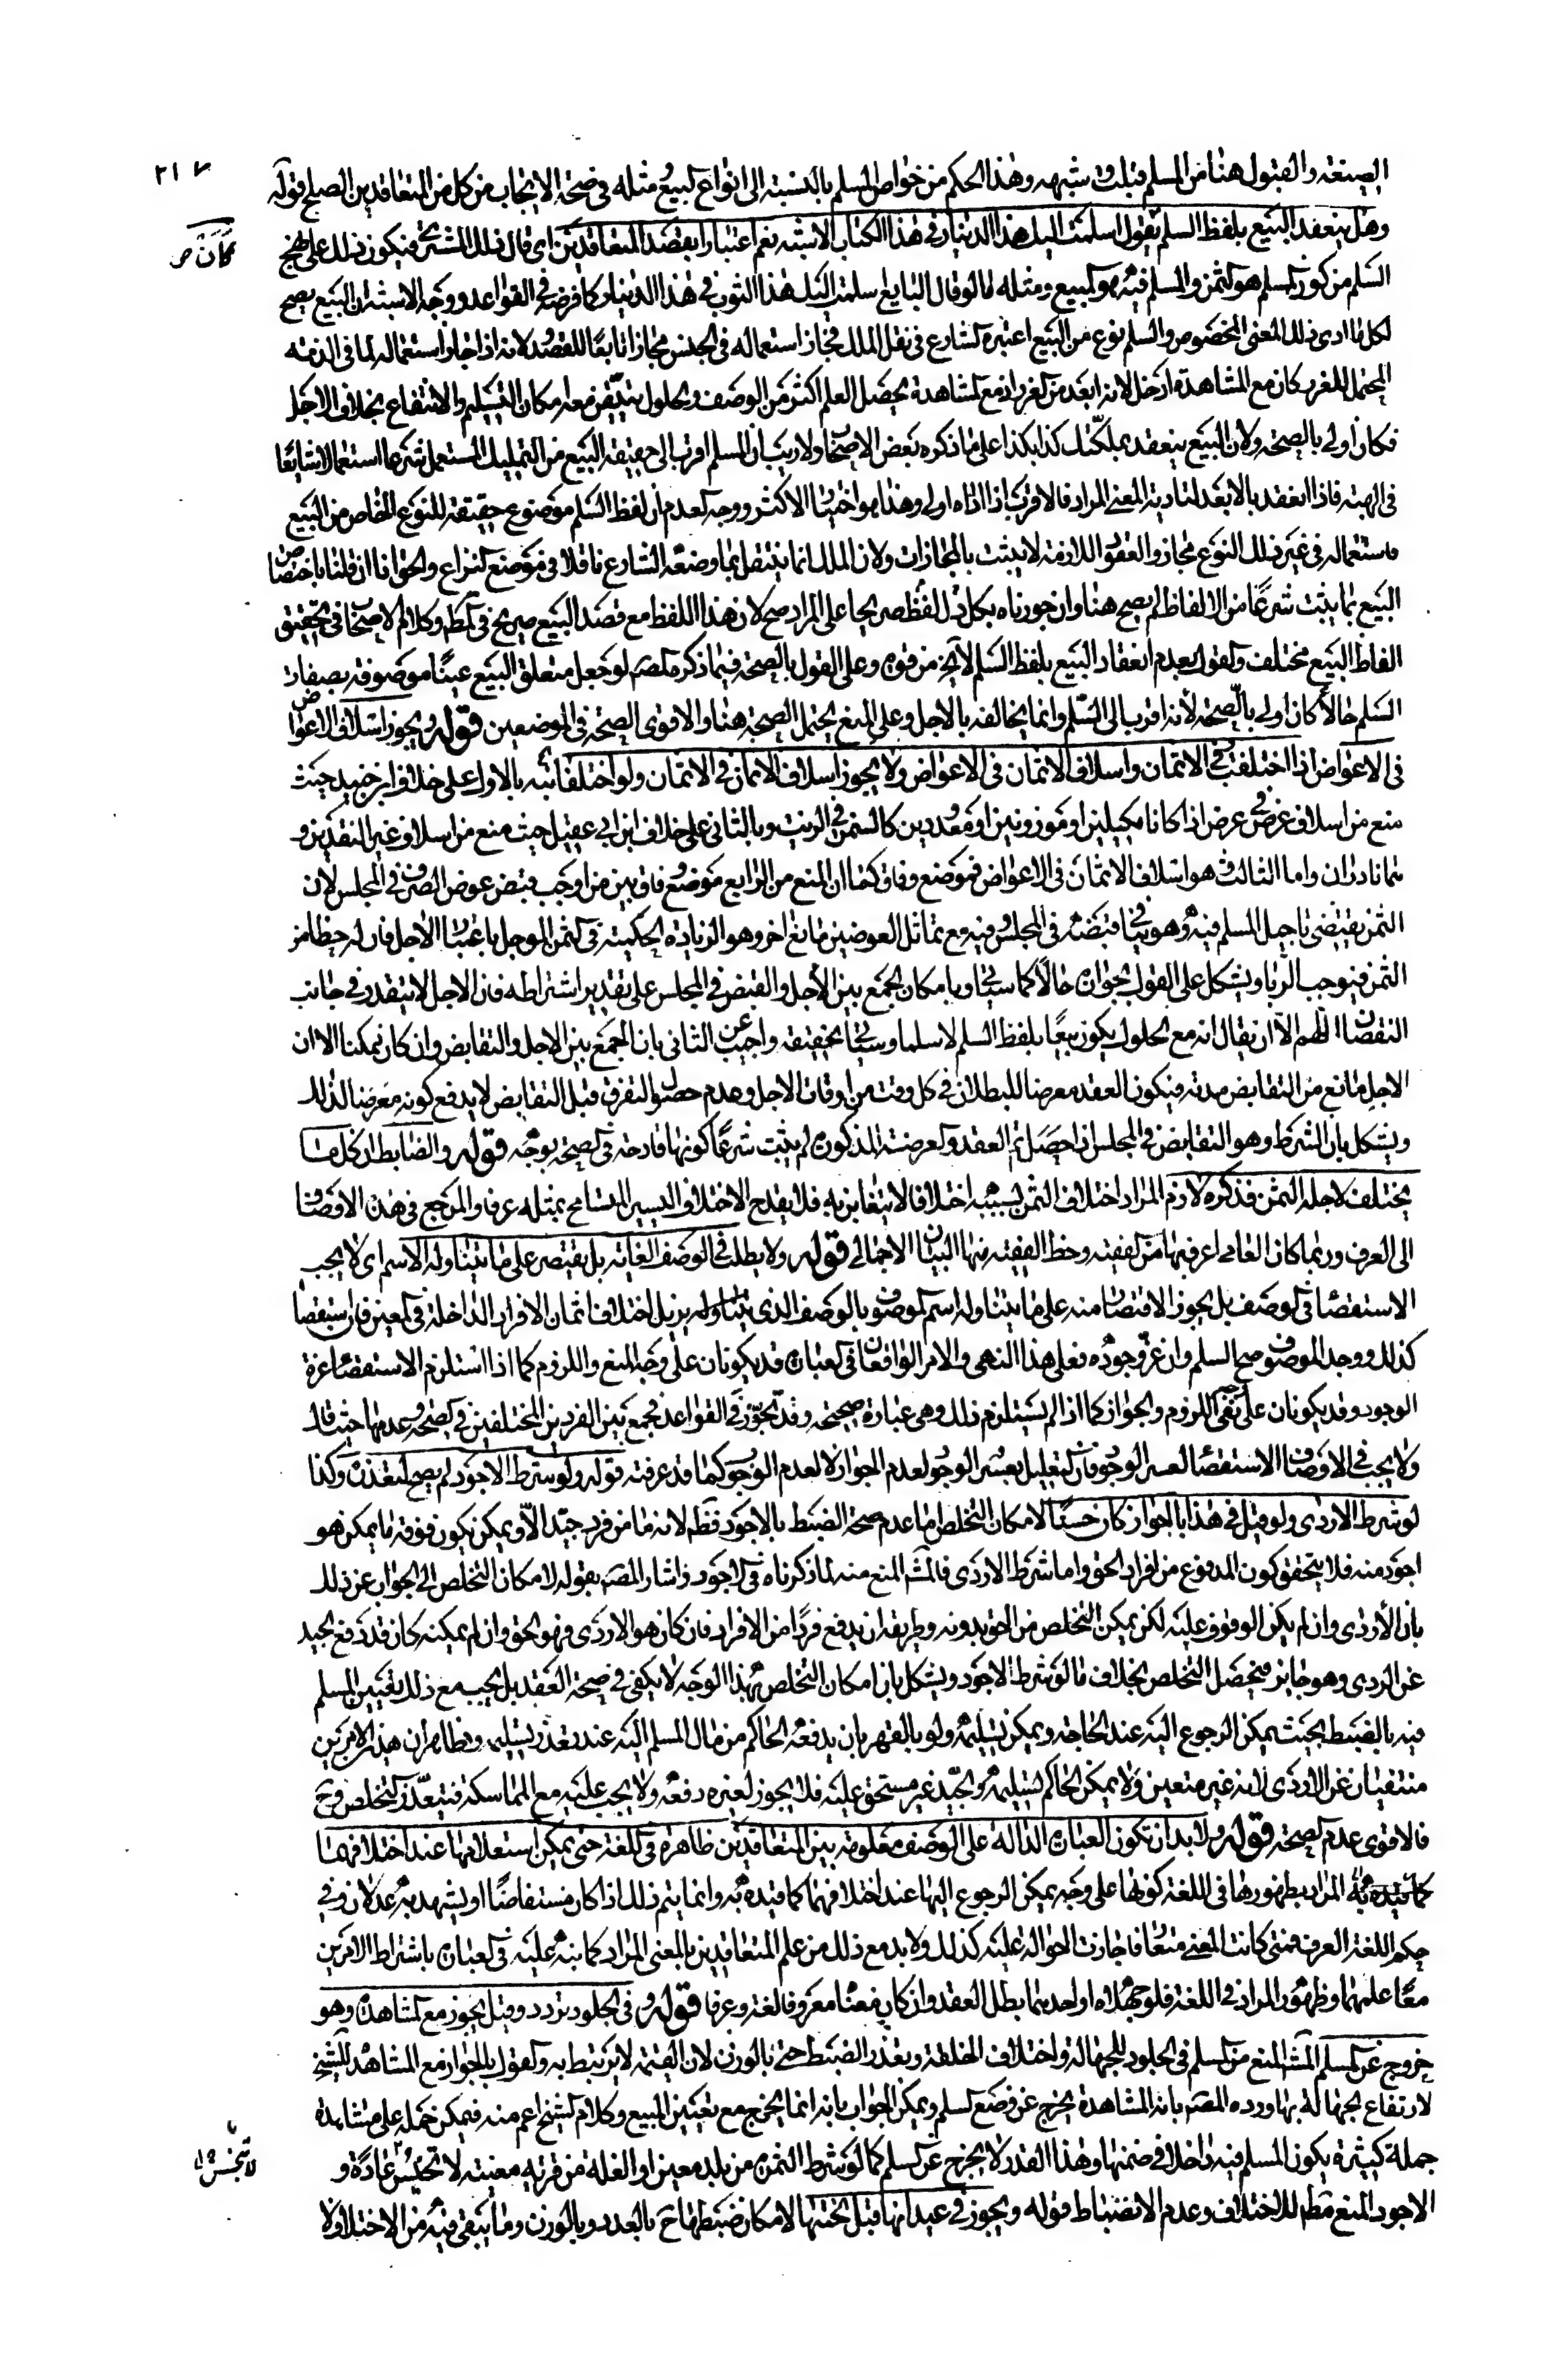 ٢١٧
الصيغة والقبول هنا من المسلم قبلت وشبهه وهذا الحكم من خواص السلم بالنسبة الى انواع البيع ومثله في صحة الايجاب من كل من المتعاقدين الصلح قوله
وهل ينعقد البيع بلفظ السلم كان يقول اسلمت اليك هذا الدينار في هذا الكتاب الاشبه نعم اعتبارا بقصد المتعاقدين اى قال ذلك المشترى فيكون ذلك على نهج
السلم من كون المسلم هو الثمن والمسلم فيه هو المبيع ومثله ما لو قال البايع اسلمت اليك هذا الثوب في هذا الدينار كما فرضه في القواعد ووجه الاشبه ان البيع يصح
لكل ما ادى ذلك المعنى المخصوص والسلم نوع من البيع اعتبره الشارع في نقل الملك فجاز استعماله في الجنس مجازا تابعا للقصد ولانه اذا جاز استعماله لما في الذمة
المحتمل للغرر كان مع المشاهدة ادخل لانه ابعد من الغرر اذ مع المشاهدة يحصل العلم اكثر من الوصف والحلول يتيقن معه امكان التسليم والانتفاع بخلاف الاجل
فكان اولى بالصحة ولان البيع ينعقد بملكتك كذا بكذا على ما ذكره بعض الاصحاب ولا ريب ان السلم اقرب الى حقيقة البيع من التمليك المستعمل شرعا استعمالا شايعا
في الهبة فاذا انعقد بالابعد لتاديته المعنى المراد فالاقرب اذا اداه اولى وهذا هو اختيار الاكثر ووجه العدم ان لفظ السلم موضوع حقيقة للنوع الخاص من البيع
فاستعماله في غير ذلك النوع مجاز والعقود اللازمة لا يثبت بالمجازات ولان الملك انما ينتقل بما وضعه الشارع ناقلا في موضع النزاع والحق انا ان قلنا باختصاص
البيع بما يثبت شرعا من الالفاظ لم يصح هنا وان جوزناه بكل ما دل لفظه صريحا على المراد صح لان هذا اللفظ مع قصد البيع صريح في المط وكلام الاصحاب في تحقيق
الفاظ البيع مختلف والقول بعدم انعقاد البيع بلفظ السلم لا يخ من قوة وعلى القول بالصحة فيما ذكره المصم لو جعل متعلق البيع عينا موصوفة بصفات
السلم حالا كان اولى بالصحة لانه اقرب الى السلم وانما يخالفه بالاجل وعلى المنع يحتمل الصحة هنا والاقوى الصحة في الموضعين قوله ويجوز اسلاف الاعواض
في الاعواض اذا اختلفت وفي الاثمان واسلاف الاثمان في الاعواض ولا يجوز اسلاف الاثمان في الاثمان ولو اختلفا نبه بالاول على خلاف ابن جنيد حيث
منع من اسلاف عرض في عرض اذا كانا مكيلين او موزونين او معدودين كالسمن في الزيت وبالثاني على خلاف ابن ابى عقيل حيث منع من اسلاف غير النقدين و
هما نادران واما الثالث وهو اسلاف الاثمان في الاعواض فموضع وفاق كما ان المنع من الرابع موضع وفاق بين من اوجب قبض عوض الصرف في المجلس لان
الثمن يقتضى تاجيل المسلم فيه وهو ينافي قبضه في المجلس وفيه مع تماثل العوضين مانع اخر وهو الزيادة الحكمية في الثمن المؤجل باعتبار الاجل فان له حظا من
الثمن فيوجب الربا ويشكل على القول بجوازه حالا كما سياتي وبامكان الجمع بين الاجل والقبض في المجلس على تقدير اشتراطه فان الاجل لا يتقدر في جانب
النقصان اللهم الا ان يقال انه مع الحلول يكون بيعا بلفظ السلم لا سلما وسياتي تحقيقه واجيب عن الثاني بان الجمع بين الاجل والتقابض وان كان ممكنا الا ان
الاجل مانع من التقابض مدته فيكون العقد معرضا للبطلان في كل وقت من اوقات الاجل وعدم حصول التفرق قبل التقابض لا يدفع كونه معرضا لذلك
ويشكل بان الشرط وهو التقابض في المجلس اذا حصل تم العقد والعرضة المذكورة لم يثبت شرعا كونها قادحة في الصحة بوجه قوله والضابط ان كل ما
يختلف لاجله الثمن فذكره لازم المراد اختلاف الثمن بسببه اختلافا لا يتغابن به فلا يقدح الاختلاف اليسير المتسامح بمثله عرفا والمرجع في هذه الاوصاف
الى العرف وربما كان العامى اعرف بها من الفقيه وحظ الفقيه منها البيان الاجمالى قوله ولا يطلب في الوصف الغاية بل يقتصر على ما يتناوله الاسم اى لا يجب
الاستقصاء في الوصف بل يجوز الاقتصار منه على ما يتناوله اسم الموصوف بالوصف الذى يزيل اختلاف اثمان الافراد الداخلة في المعين فان استقصى
كذلك ووجد الموصوف صح السلم وان عز وجوده فعلى هذا النهى والامر الواقعان في العبارة قد يكونان على وجه المنع واللزوم كما اذا استلزم الاستقصاء عزة
الوجود وقد يكونان على نفى اللزوم والجواز كما اذا لم يستلزم ذلك وهى عبارة صحيحة وقد تجوز في القواعد فجمع بين الفردين المختلفين في الصحة وعدمها حيث قال
ولا يجب في الاوصاف الاستقصاء لعسر الوجود فان التعليل بعسر الوجود لعدم الجواز لا لعدم الوجوب كما قد عرفته قوله ولو شرط الاجود لم يصح لتعذره وكذا
لو شرط الاردى ولو قيل في هذا بالجواز كان حسنا لامكان التخلص اما عدم صحة الضبط بالاجود فظم لانه ما من فرد جيد الا ويمكن ان يكون فوقه ما يمكن هو
اجود منه فلا يتحقق كون المدفوع من افراد الحق واما شرط الاردى فالمشهر المنع منه لما ذكرناه في الاجود واشار المصم بقوله لامكان التخلص الى الجواب عن ذلك
بان الاردى وان لم يكن الوقوف عليه لكن يمكن التخلص من الحق بدونه وطريقه ان يدفع فردا من الافراد فان كان هو الاردى فهو الحق وان لم يكنه كان قد دفع الجيد
عن الردى وهو جايز فيحصل التخلص بخلاف ما لو شرط الاجود ويشكل بان امكان التخلص بهذا الوجه لا يكفى في صحة العقد بل يجب مع ذلك تعيين المسلم
فيه بالضبط بحيث يمكن الرجوع اليه عند الحاجة ويمكن تسليمه ولو بالقهر بان يدفعه الحاكم من مال المسلم اليه عند تعذر تسليمه وظاهر ان هذين الامرين
منتفيان عن الاردى لانه غير متعين ولا يمكن الحاكم تسليمه والجيد غير مستحق عليه فلا يجوز لغيره دفعه ولا يجب عليه مع المماسكة فيتعذر التخلص وح
فالاقوى عدم الصحة قوله ولا بد ان تكون العبارة الدالة على الوصف معلومة بين المتعاقدين ظاهرة في اللغة حتى يمكن استعلامها عند اختلافهما
كما قيده به المراد بظهورها في اللغة كونها على وجه يمكن الرجوع اليها عند اختلافهما كما قيده به وانما يتم ذلك اذا كان مستفاضا او يشهد به عدلان وفي
حكم اللغة العرف فمتى كانت المعنى متعارفا جازت الحوالة عليه كذلك ولا بد مع ذلك من علم المتعاقدين بالمعنى المراد كما نبه عليه في العبارة باشتراط الامرين
معا علمهما وظهور المراد في اللغة فلو جهلاه او احدهما بطل العقد وان كان معنا معروفا لغة وعرفا قوله وفي الجلود تردد وقيل يجوز مع المشاهدة وهو
خروج عن السلم المشهر المنع من السلم في الجلود للجهالة واختلاف الخلقة وتعذر الضبط حتى بالوزن لان القيمة لا يرتبط به والقول بالجواز مع المشاهدة للشيخ
لارتفاع الجهالة بها ورده المصم بانه المشاهدة يخرج عن وضع السلم ويمكن الجواب بانه انما يخرج مع تعيين المبيع وكلام الشيخ اعم منه فيمكن حمله على مشاهدة
جملة كثيرة يكون المسلم فيه داخلا في ضمنها وهذا القدر لا يخرج عن السلم كما لو شرط الثمرة من بلد معين او الغلة من قرية معينة لا تخيس عادة و
الاجود المنع مطم للاختلاف وعدم الانضباط قوله ويجوز في عيدانها قبل نحتها لامكان ضبطها ح بالعدد وبالوزن وما يبقى فيه من الاختلاف لا